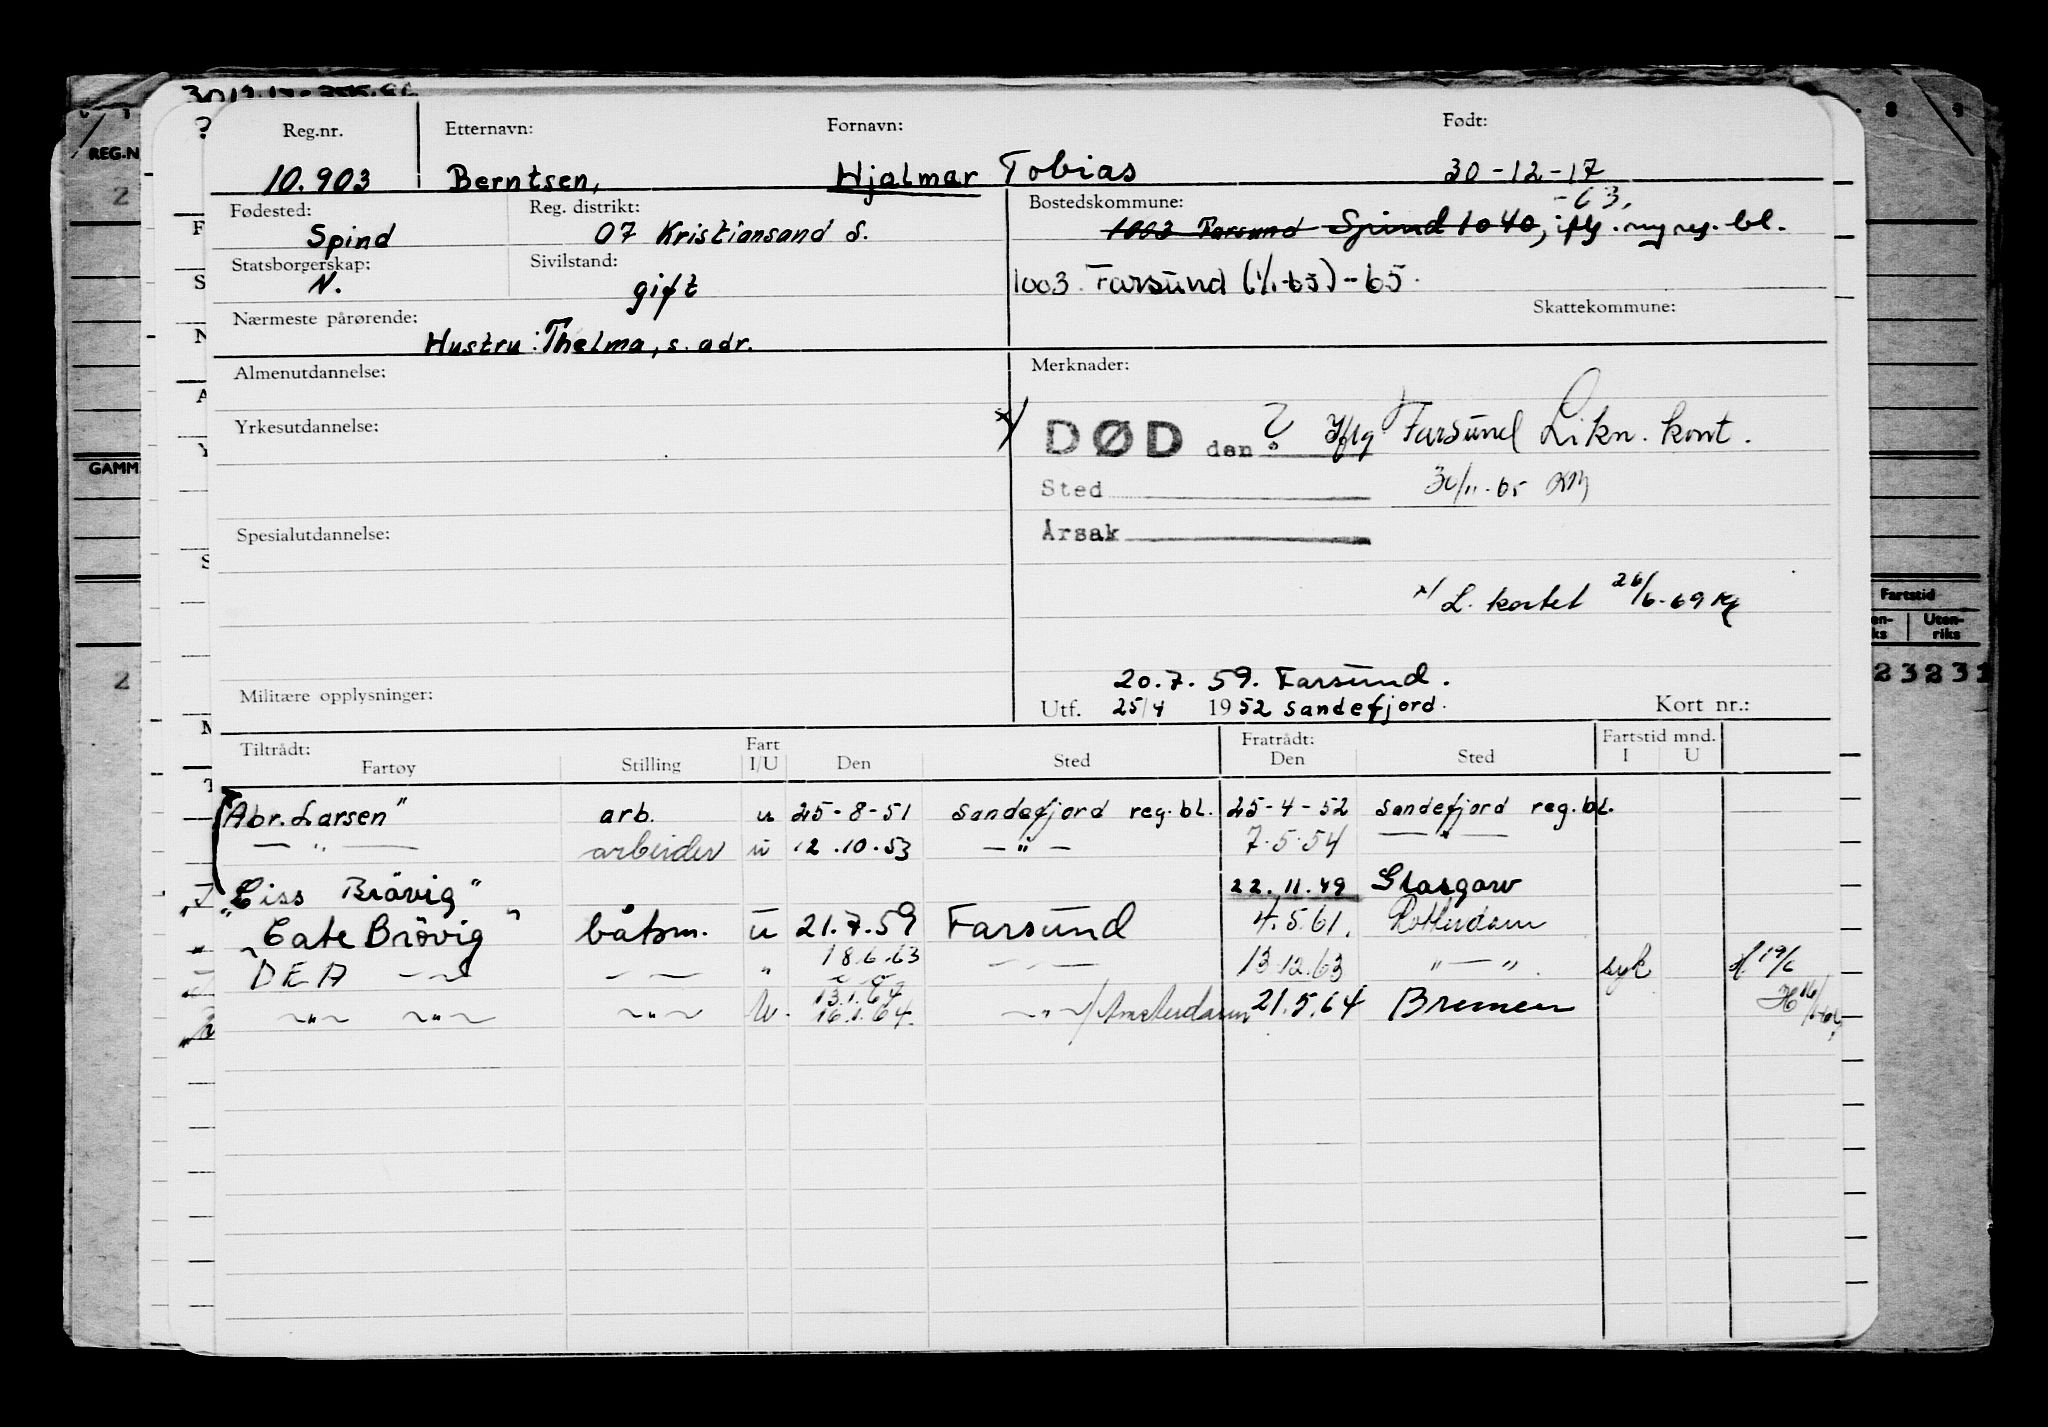 Reg.nr. Etternavn: Fornavn: Født:
10.903 Berntsen, Hjalmar Tobias 30-12-17
Fødested: Reg. distrikt: Bostedskommune: -63.
Spind 07 Kristiansand S. 1003 Farsund Spind 1040, iflg. ny reg. bl.
Statsborgerskap: Sivilstand:
N. gift 1003 Farsund (1/1-63) -65.
Nærmeste pårørende: Skattekommune:
Hustru: Thelma, s. adr.
Almenutdannelse: Merknader:
Yrkesutdannelse: x/ DØD den ? Iflg Farsund Likn. kont.
Sted 30/11-65
Spesialutdannelse: Årsak
x/ L. kortet 26/6-69
20.7.59. Farsund.
Militære opplysninger: Utf. 25/4 1952 Sandefjord. Kort nr.:
Tiltrådt: Fart Fratrådt: Fartstid mnd.
Fartøy Stilling I/U Den Sted Den Sted I U
Abr. Larsen" arb. u 25-8-51 Sandefjord reg. bl. 25-4-52 Sandefjord reg. bl.
— " — arbeider u 12.10.53 — " — 7.5.54 — " —
"Liss Brövig" 22.11.49 Glasgow
"Cate Brövig" båtsm. u 21.7.59 Farsund 4.5.61. Rotterdam
DEA — " — — " — " 18.6.63 — " — 13.12.63 " — " syk 19/6
— " — — " — — " — U. 13.1.64 16.1.64. — " — / Amsterdam 21.5.64 Bremen
REG.N
2
GAMM
2
8 9
Fartstid
Uten-
riks
23231